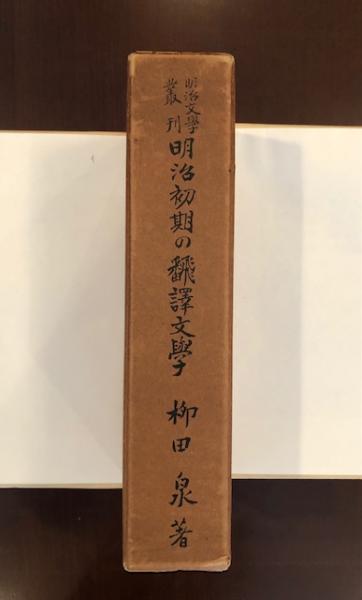 明治文學
叢刊
明治初期の飜譯文學 柳田泉著